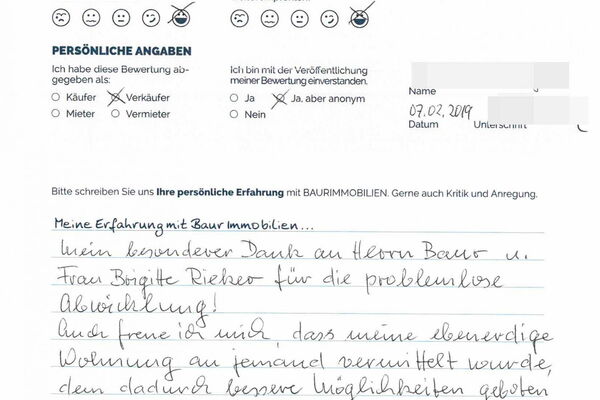 PERSÖNLICHE ANGABEN
Ich habe diese Bewertung ab-
gegeben als:
Käufer Verkäufer
Mieter Vermieter
Ich bin mit der Veröffentlichung
meiner Bewertung einverstanden.
Ja Ja, aber anonym
Nein
Name
07.02.2019
Datum Unterschrift
Bitte schreiben Sie uns Ihre persönliche Erfahrung mit BAURIMMOBILIEN. Gerne auch Kritik und Anregung.
Meine Erfahrung mit Baur Immobilien...
Mein besonderer Dank an Herrn Baur u.
Frau Brigitte Rieker für die problemlose
Abwicklung!
Auch freue ich mich, dass meine ebenerdige
Wohnung an jemand vermittelt wurde,
dem dadurch bessere Möglichkeiten geboten